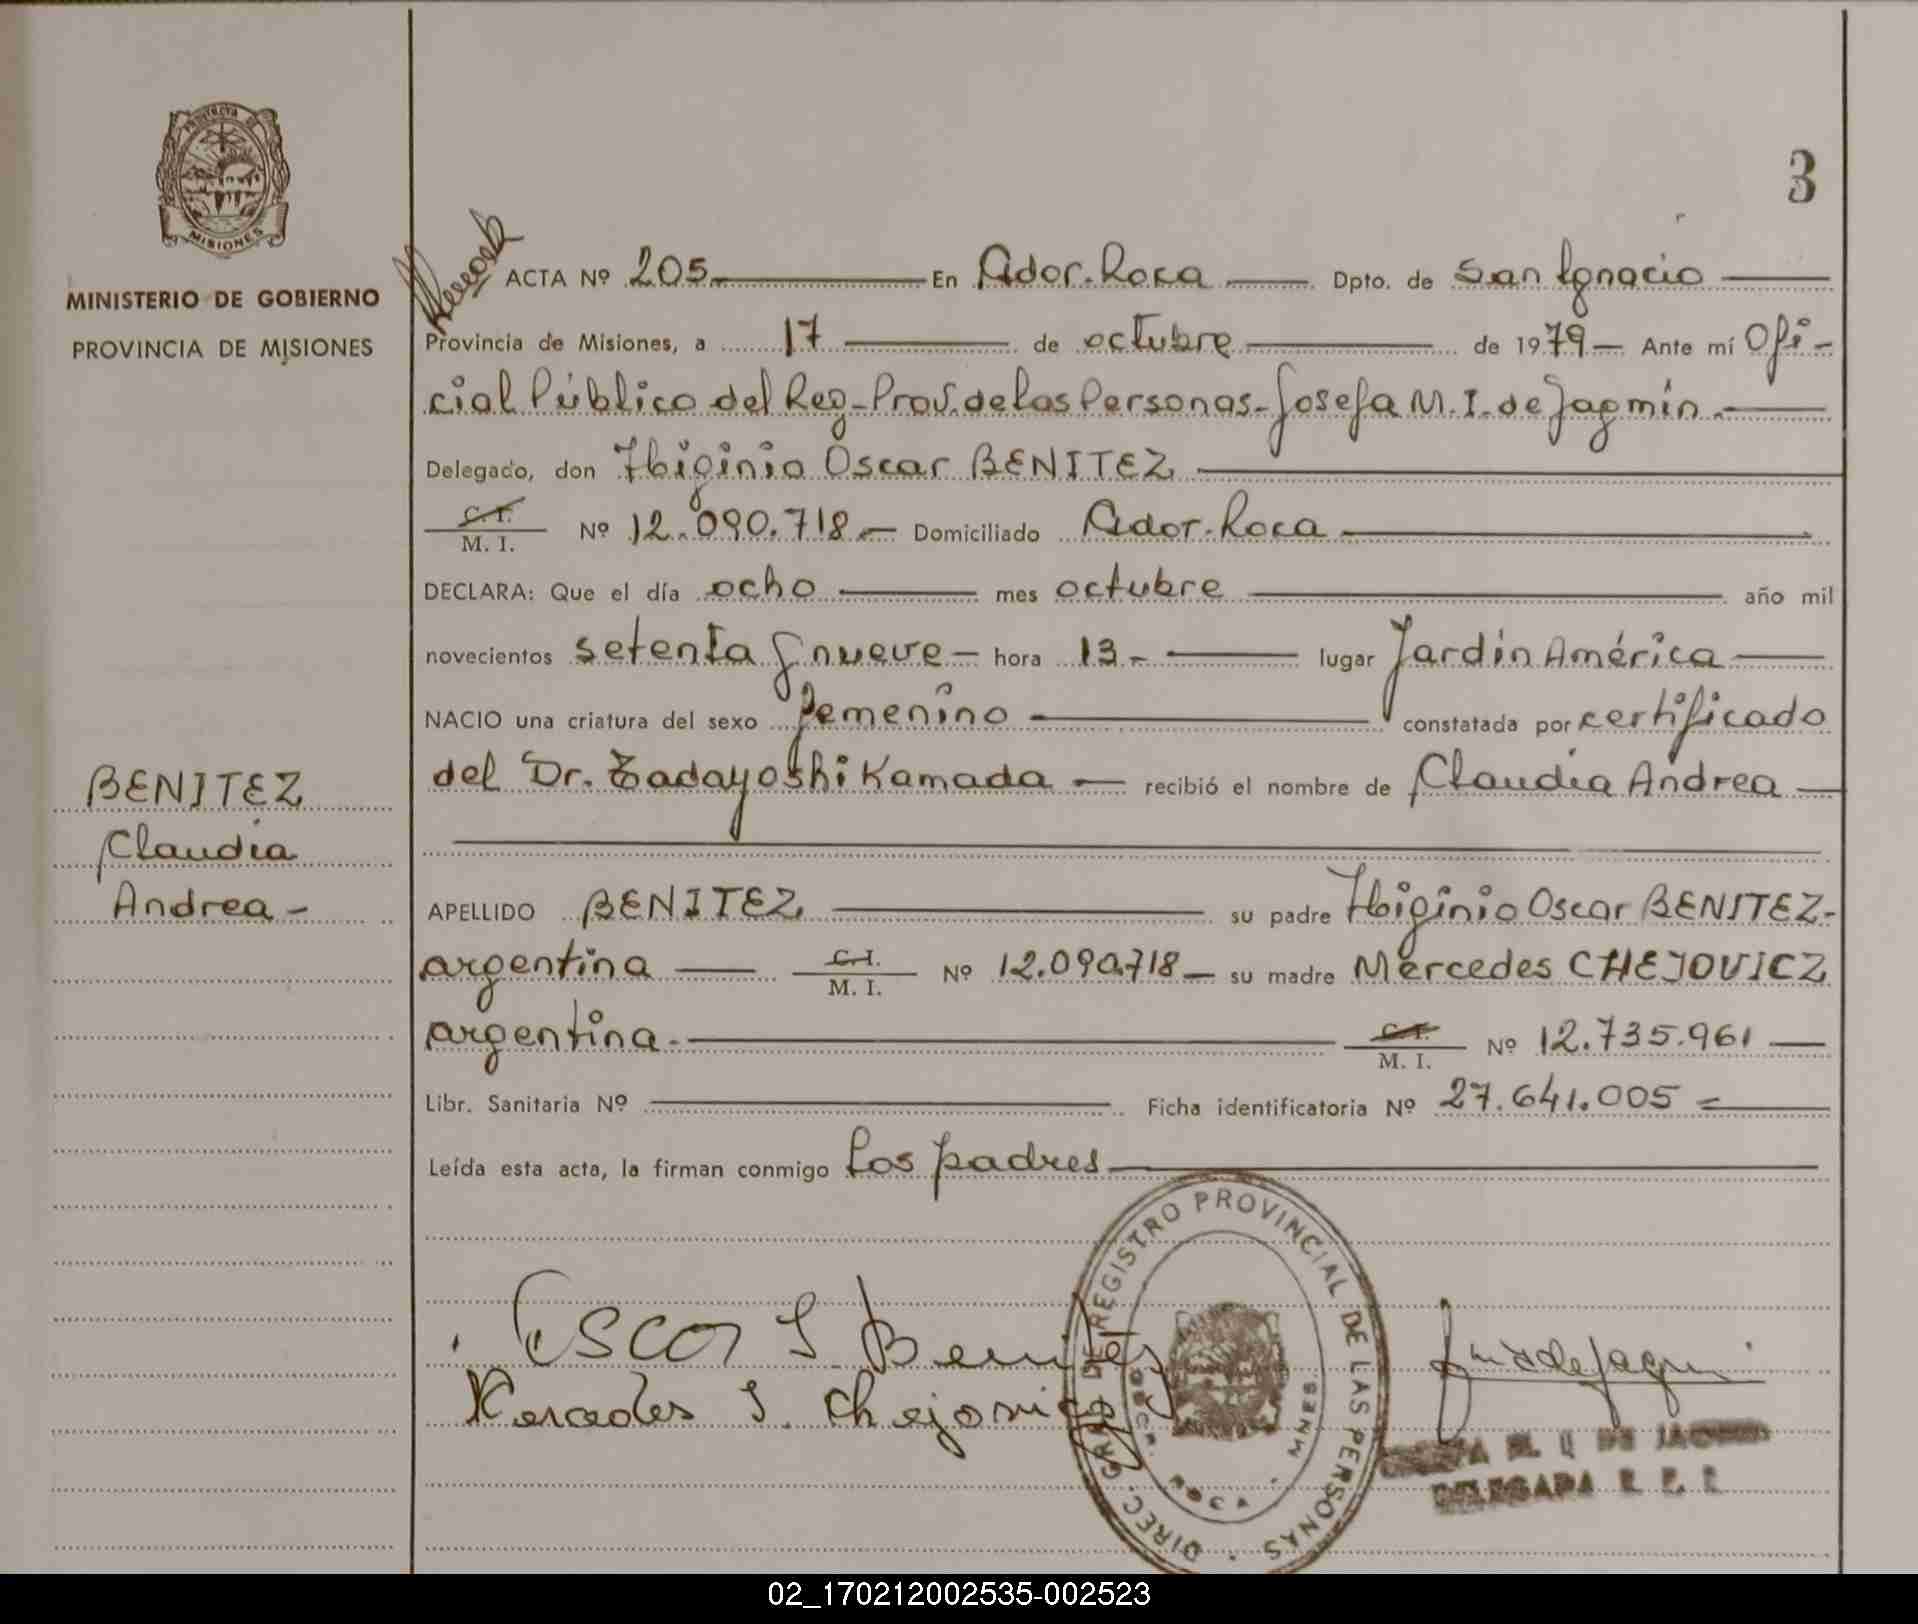 PROVINCIA DE
MISIONES
MINISTERIO DE GOBIERNO
PROVINCIA DE MISIONES
BENITEZ
Claudia
Andrea -
3
ACTA Nº 205. En Gdor. Roca Dpto. de San Ignacio
Provincia de Misiones, a 17 de octubre de 1979 Ante mí Ofi-
cial Público del Reg. Prov. de las Personas - Josefa M. I. de Jagmin.
Delegado, don Higinio Oscar BENITEZ
C. I. / M. I. Nº 12.090.718 Domiciliado Gdor. Roca
DECLARA: Que el día ocho mes octubre año mil
novecientos setenta y nueve hora 13 lugar Jardín América
NACIO una criatura del sexo femenino constatada por certificado
del Dr. Tadayoshi Kamada recibió el nombre de Claudia Andrea
APELLIDO BENITEZ su padre Higinio Oscar BENITEZ-
argentina C. I. / M. I. Nº 12.090.718 su madre Mercedes CHEJOVICZ
argentina. C. I. / M. I. Nº 12.735.961
Libr. Sanitaria Nº Ficha identificatoria Nº 27.641.005
Leída esta acta, la firman conmigo los padres
DIREC. GRAL. DE REGISTRO PROVINCIAL DE LAS PERSONAS
MNES.
ROCA
Oscar Benitez
Mercedes Chejovicz
DELEGADA
02_170212002535-002523